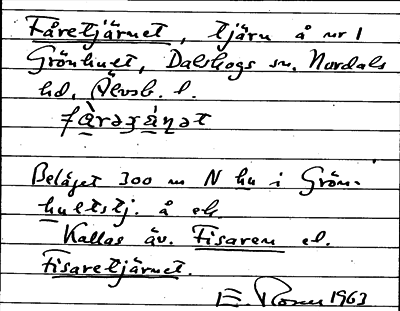 Fåretjärnet, tjärn å nr 1
Grönhult, Dalskogs sn. Nordals
hd. Älvsb. l.
Beläget 300 m N hu i Grön-
hultstj. å ek.
Kallas äv. Fisaren el.
Fisaretjärnet.
1963